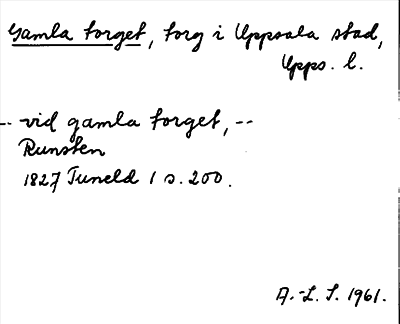 Gamla torget, torg i Uppsala stad,
Upps. l.
-- vid gamla torget, --
Runsten
1827 Tuneld 1 s. 200.
A.-L. S. 1961.